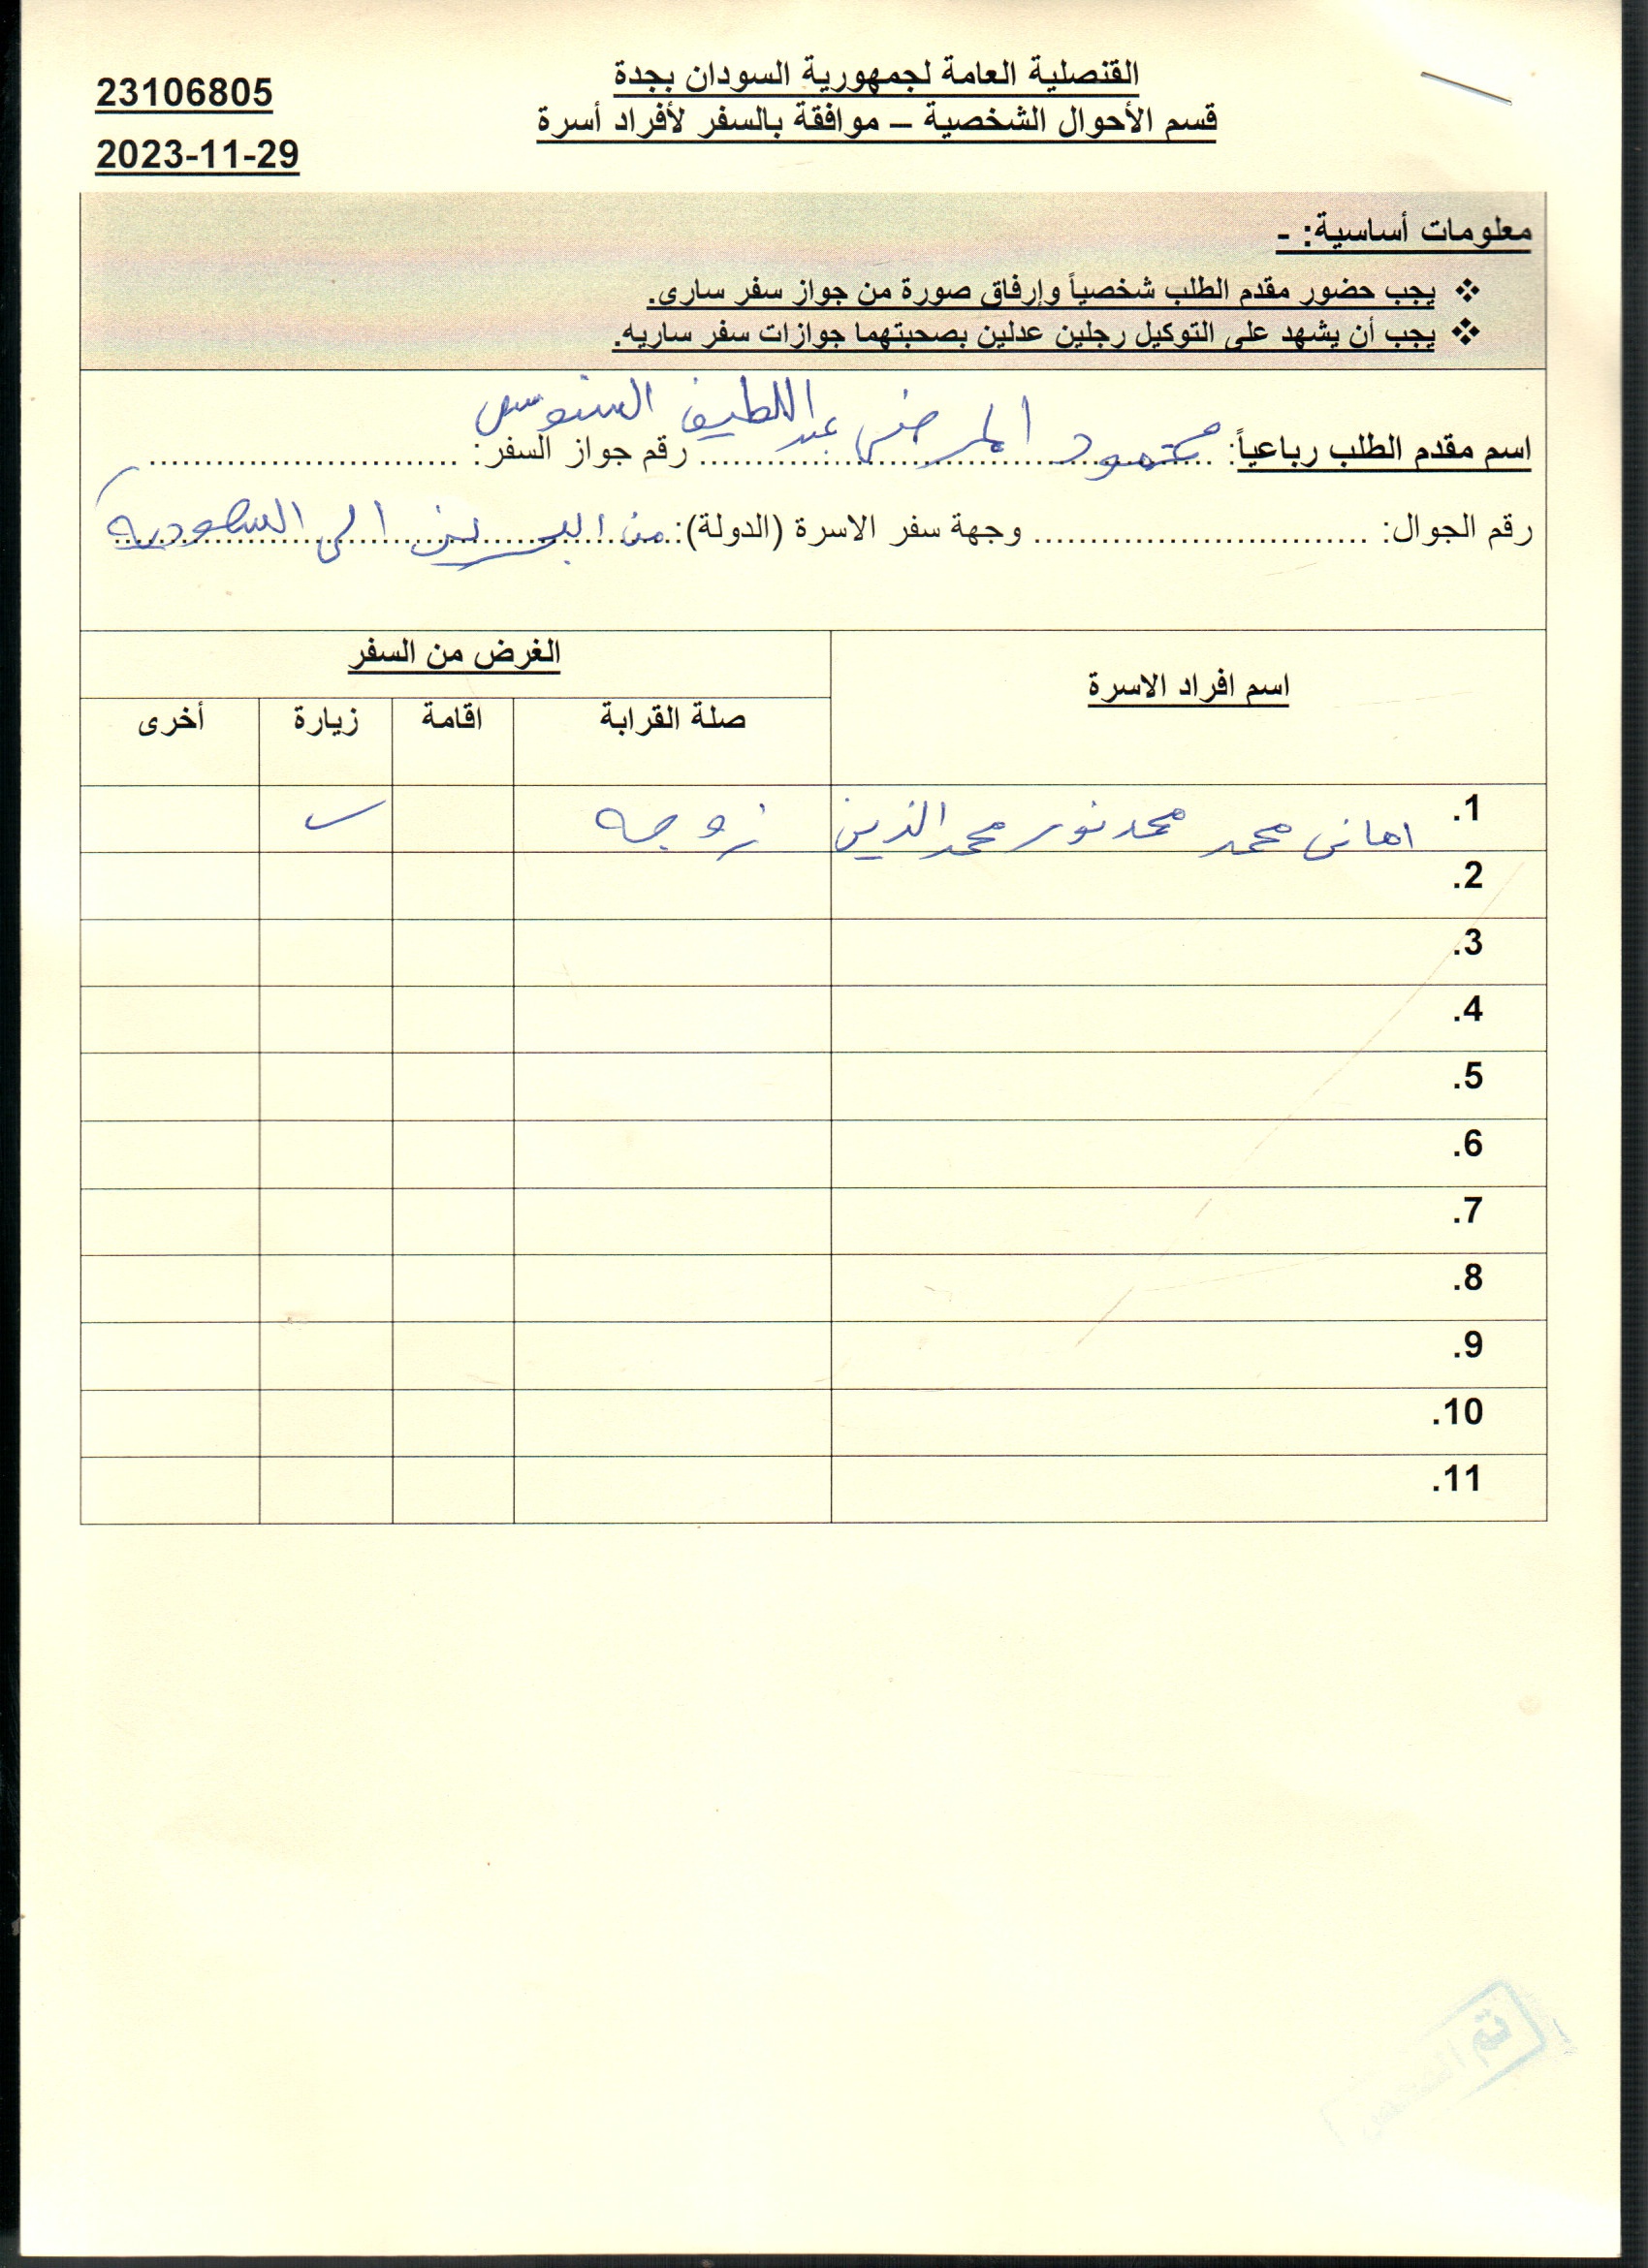 23106805
2023-11-29
القنصلية العامة لجمهورية السودان بجدة
قسم الأحوال الشخصية – موافقة بالسفر لأفراد أسرة
معلومات أساسية: -
❖ يجب حضور مقدم الطلب شخصياً وإرفاق صورة من جواز سفر سارى.
❖ يجب أن يشهد على التوكيل رجلين عدلين بصحبتهما جوازات سفر ساريه.
اسم مقدم الطلب رباعياً: محمود المرضى عبد اللطيف السنوسى رقم جواز السفر: ............................
رقم الجوال: .............................. وجهة سفر الاسرة (الدولة): من البحرين الى السعودية
اسم افراد الاسرة الغرض من السفر
صلة القرابة اقامة زيارة أخرى
1. اهانى محمد محمد نور محمد الزين زوجه
2.
3.
4.
5.
6.
7.
8.
9.
10.
11.
تم